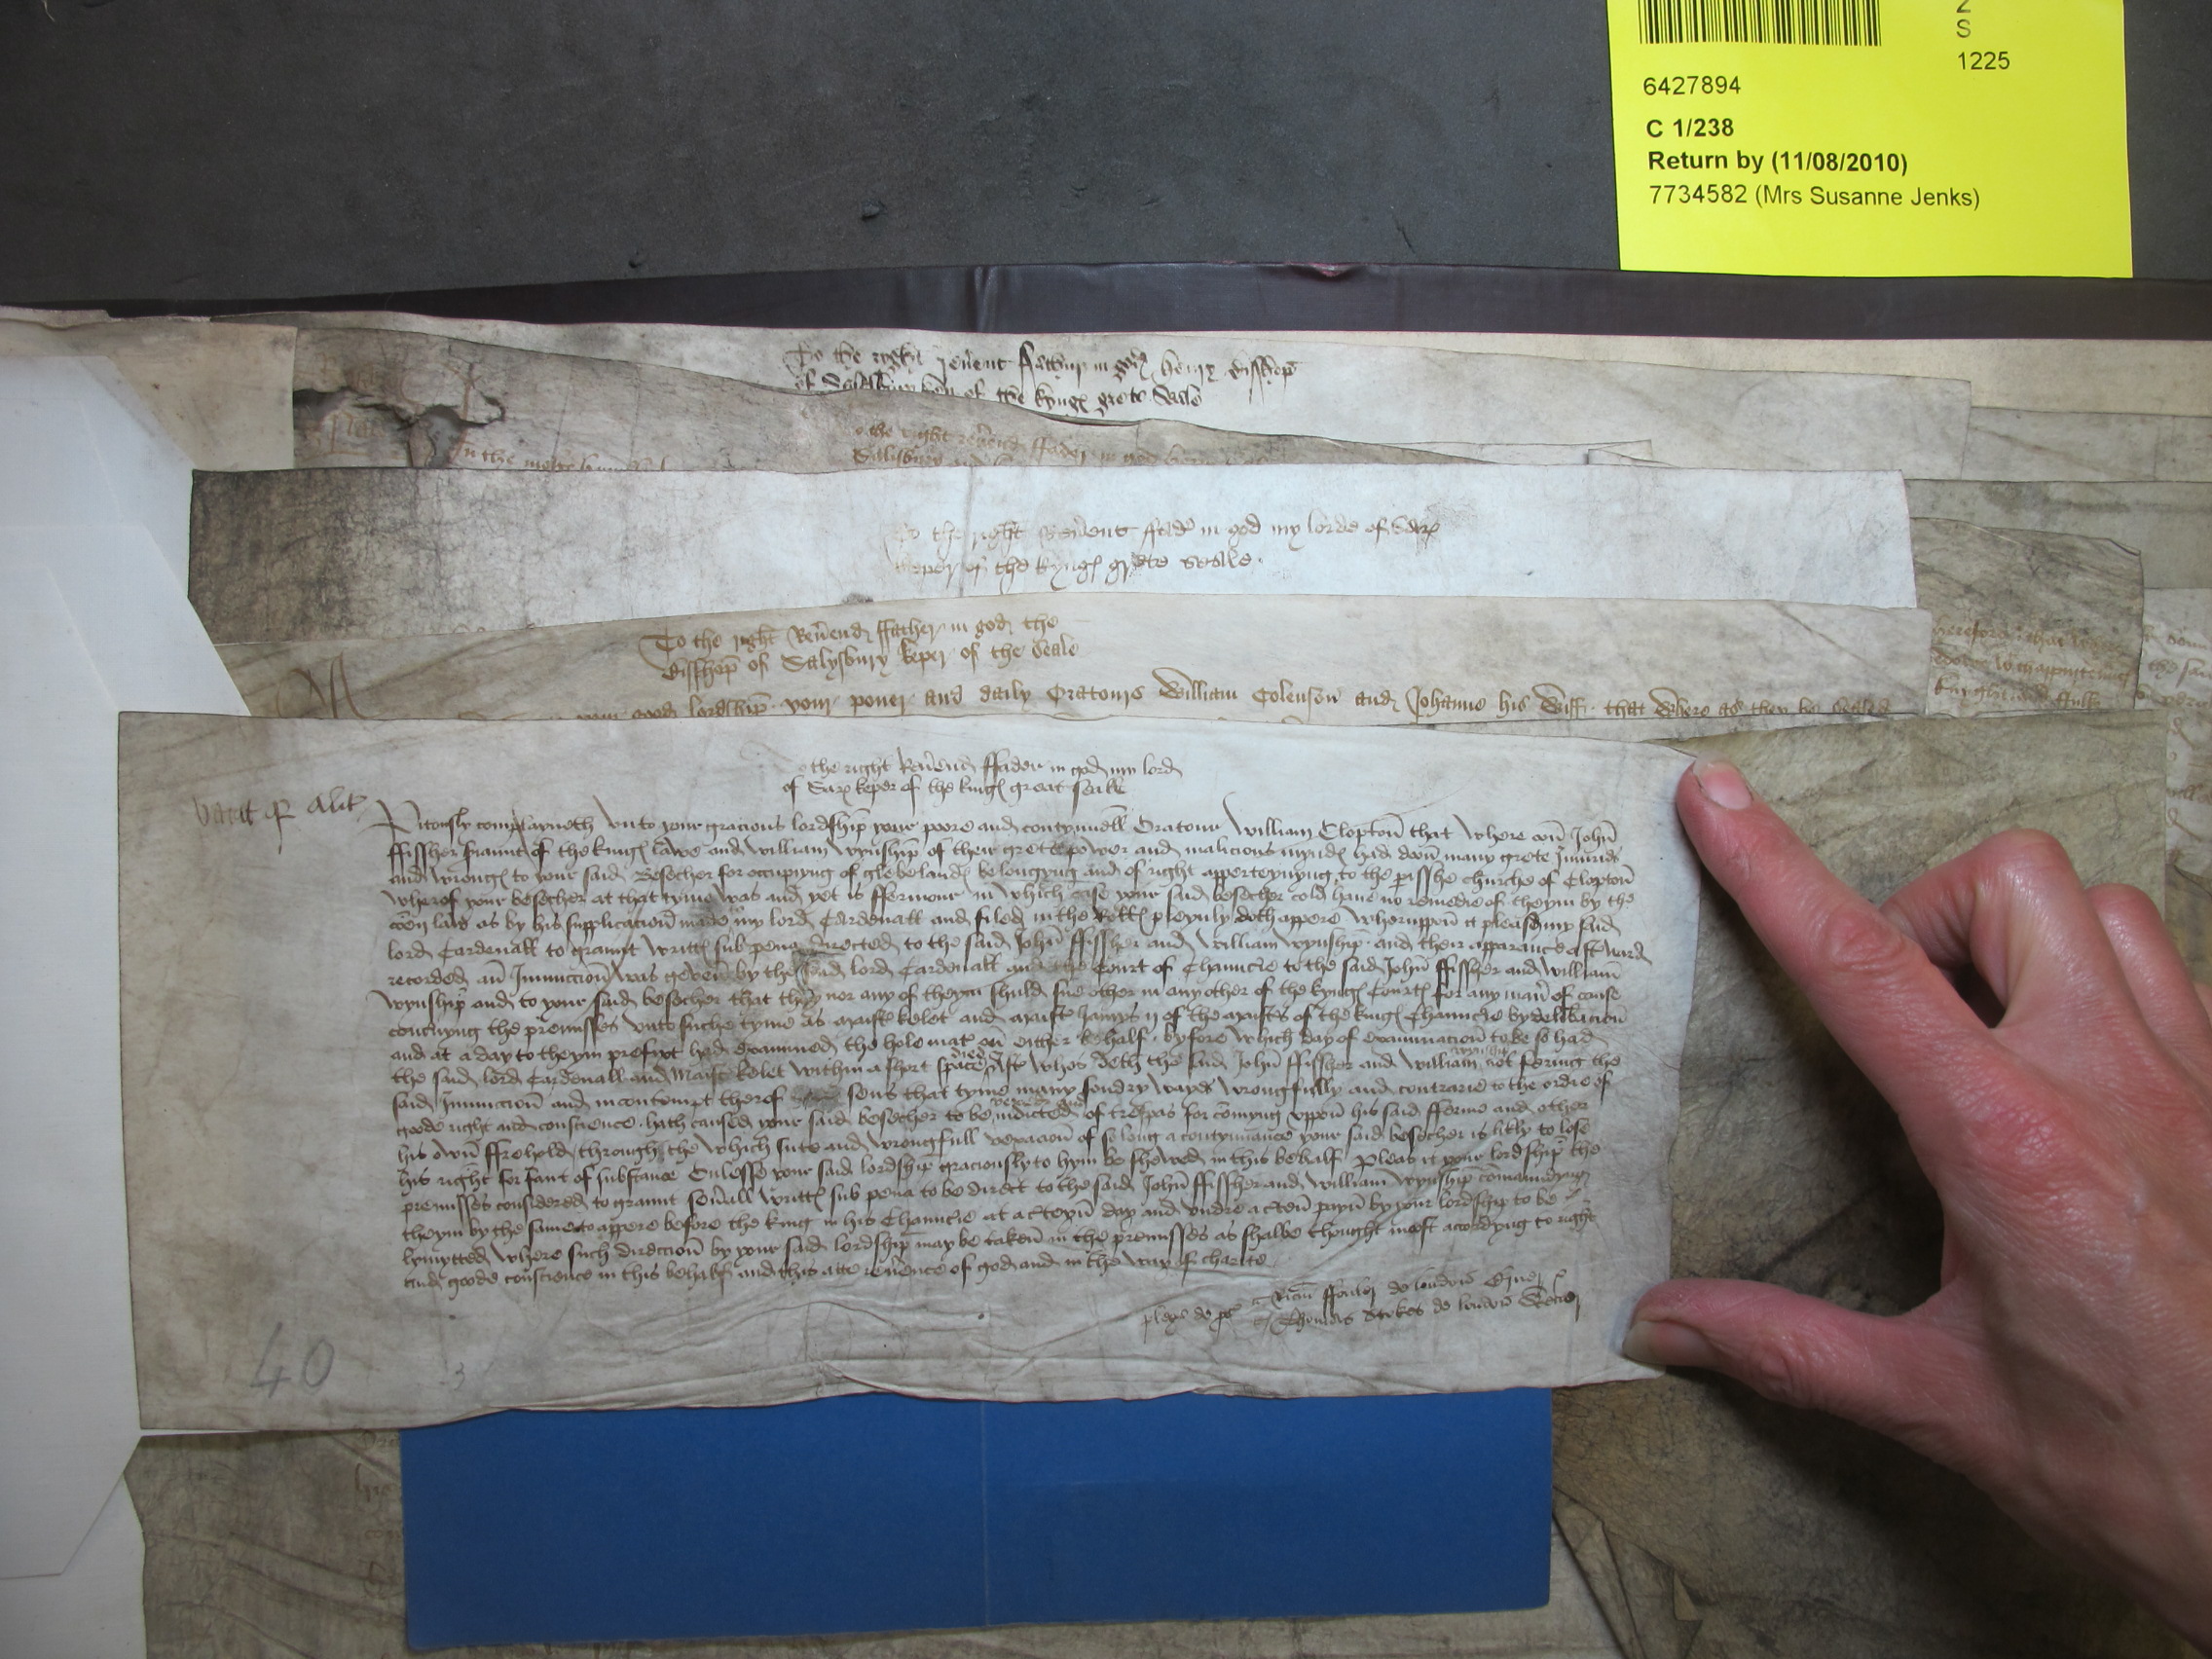 Z
S
1225
6427894
C 1/238
Return by (11/08/2010)
7734582 (Mrs Susanne Jenks)
To the right reuent ffathir in god henry Bisshop
of the kyngs grete Seale
o the right reuend ffader in god henry
Salisbury and
In the moste
To the right Reuent ffader in god my lorde of Sarr
keper of the kyngs grete seale
To the right Reuend ffather in god the
Bisshop of Salysbury keper of the Seale
your good lordship your pouer and daily Oratours William Colenson and Johanne his Wiff that Where as they be seased
o the right Reuend ffader in god my lord
of Sarr keper of the kings great seall
Vacat qr alit
Pitously complayneth vnto your gracious lordship your poore and contynuell Oratour William Clopton that Where con John
ffissher seriaunt of the kings lawe and William Wynship of their grete power and malicious mynds had doon many grete Iniuries
and wrongs to your said Besecher for occupiyng of glebelands belongyng and of right apperteynyng to the parisshe churche of Clopton
wherof your besecher at that tyme was and yet is ffermour in which case your said besecher cold haue no remedie of theym by the
coen law as by his supplicacion made to my lord Cardenall and filed in the Rolls pleynly doth appere Wheruppon it pleas my said
lord Cardenall to graunt writts subpena directed to the said John ffissher and William Wynship and their apparance aftward
recorded an Iniunccion was geven by the said lord Cardenall and the Court of Chauncie to the said John ffissher and William
Wynship and to your said besecher that they nor any of theym shuld sue other in any other of the kyngs Courts for any maner of cause
concnyng the premisses vnto suche tyme as maister kelet and maister Jamys ij of the maisters of the kings Chauncie by delibacion
and at a day to theym prefixt had examined the hole mater on either behalf byfore Which day of examinacion to be so had
the said lord Cardenall and Maister kelet within a short space died After whos deth the said John ffissher and William not fering the
said Iniunccion and in contempt therof sens that tyme many sondry ways Wrongfully and contrarie to the ordre of
goode right and conscience hath caused your said besecher to be indicted of trespas for comyng vppon his said fferme and other
his own ffrehold through the Which sute and Wrongfull vexacion of so long a contynuance your said besecher is likly to lose
his right for faut of substance Enlesse your said lordship graciously to hym be shewed in this behalf Pleas it your lordship the
premisses considered to graunt seuall Writts sub pena to be direct to the said John ffissher and William Wynship comaundyng
theym by the same to appere before the king in his Chauncie at a cteyn day and vndre a cten payn by your lordship to be
lymytted Where such direccion by your said lordship may be taken in the premisses as shalbe thought most accordyng to right
and goode conscience in this behalf and this atte reuence of god and in the Way of charite
plegg de ps
Ricus ffouler de london Gener
Thomas Stokes de london
40
3